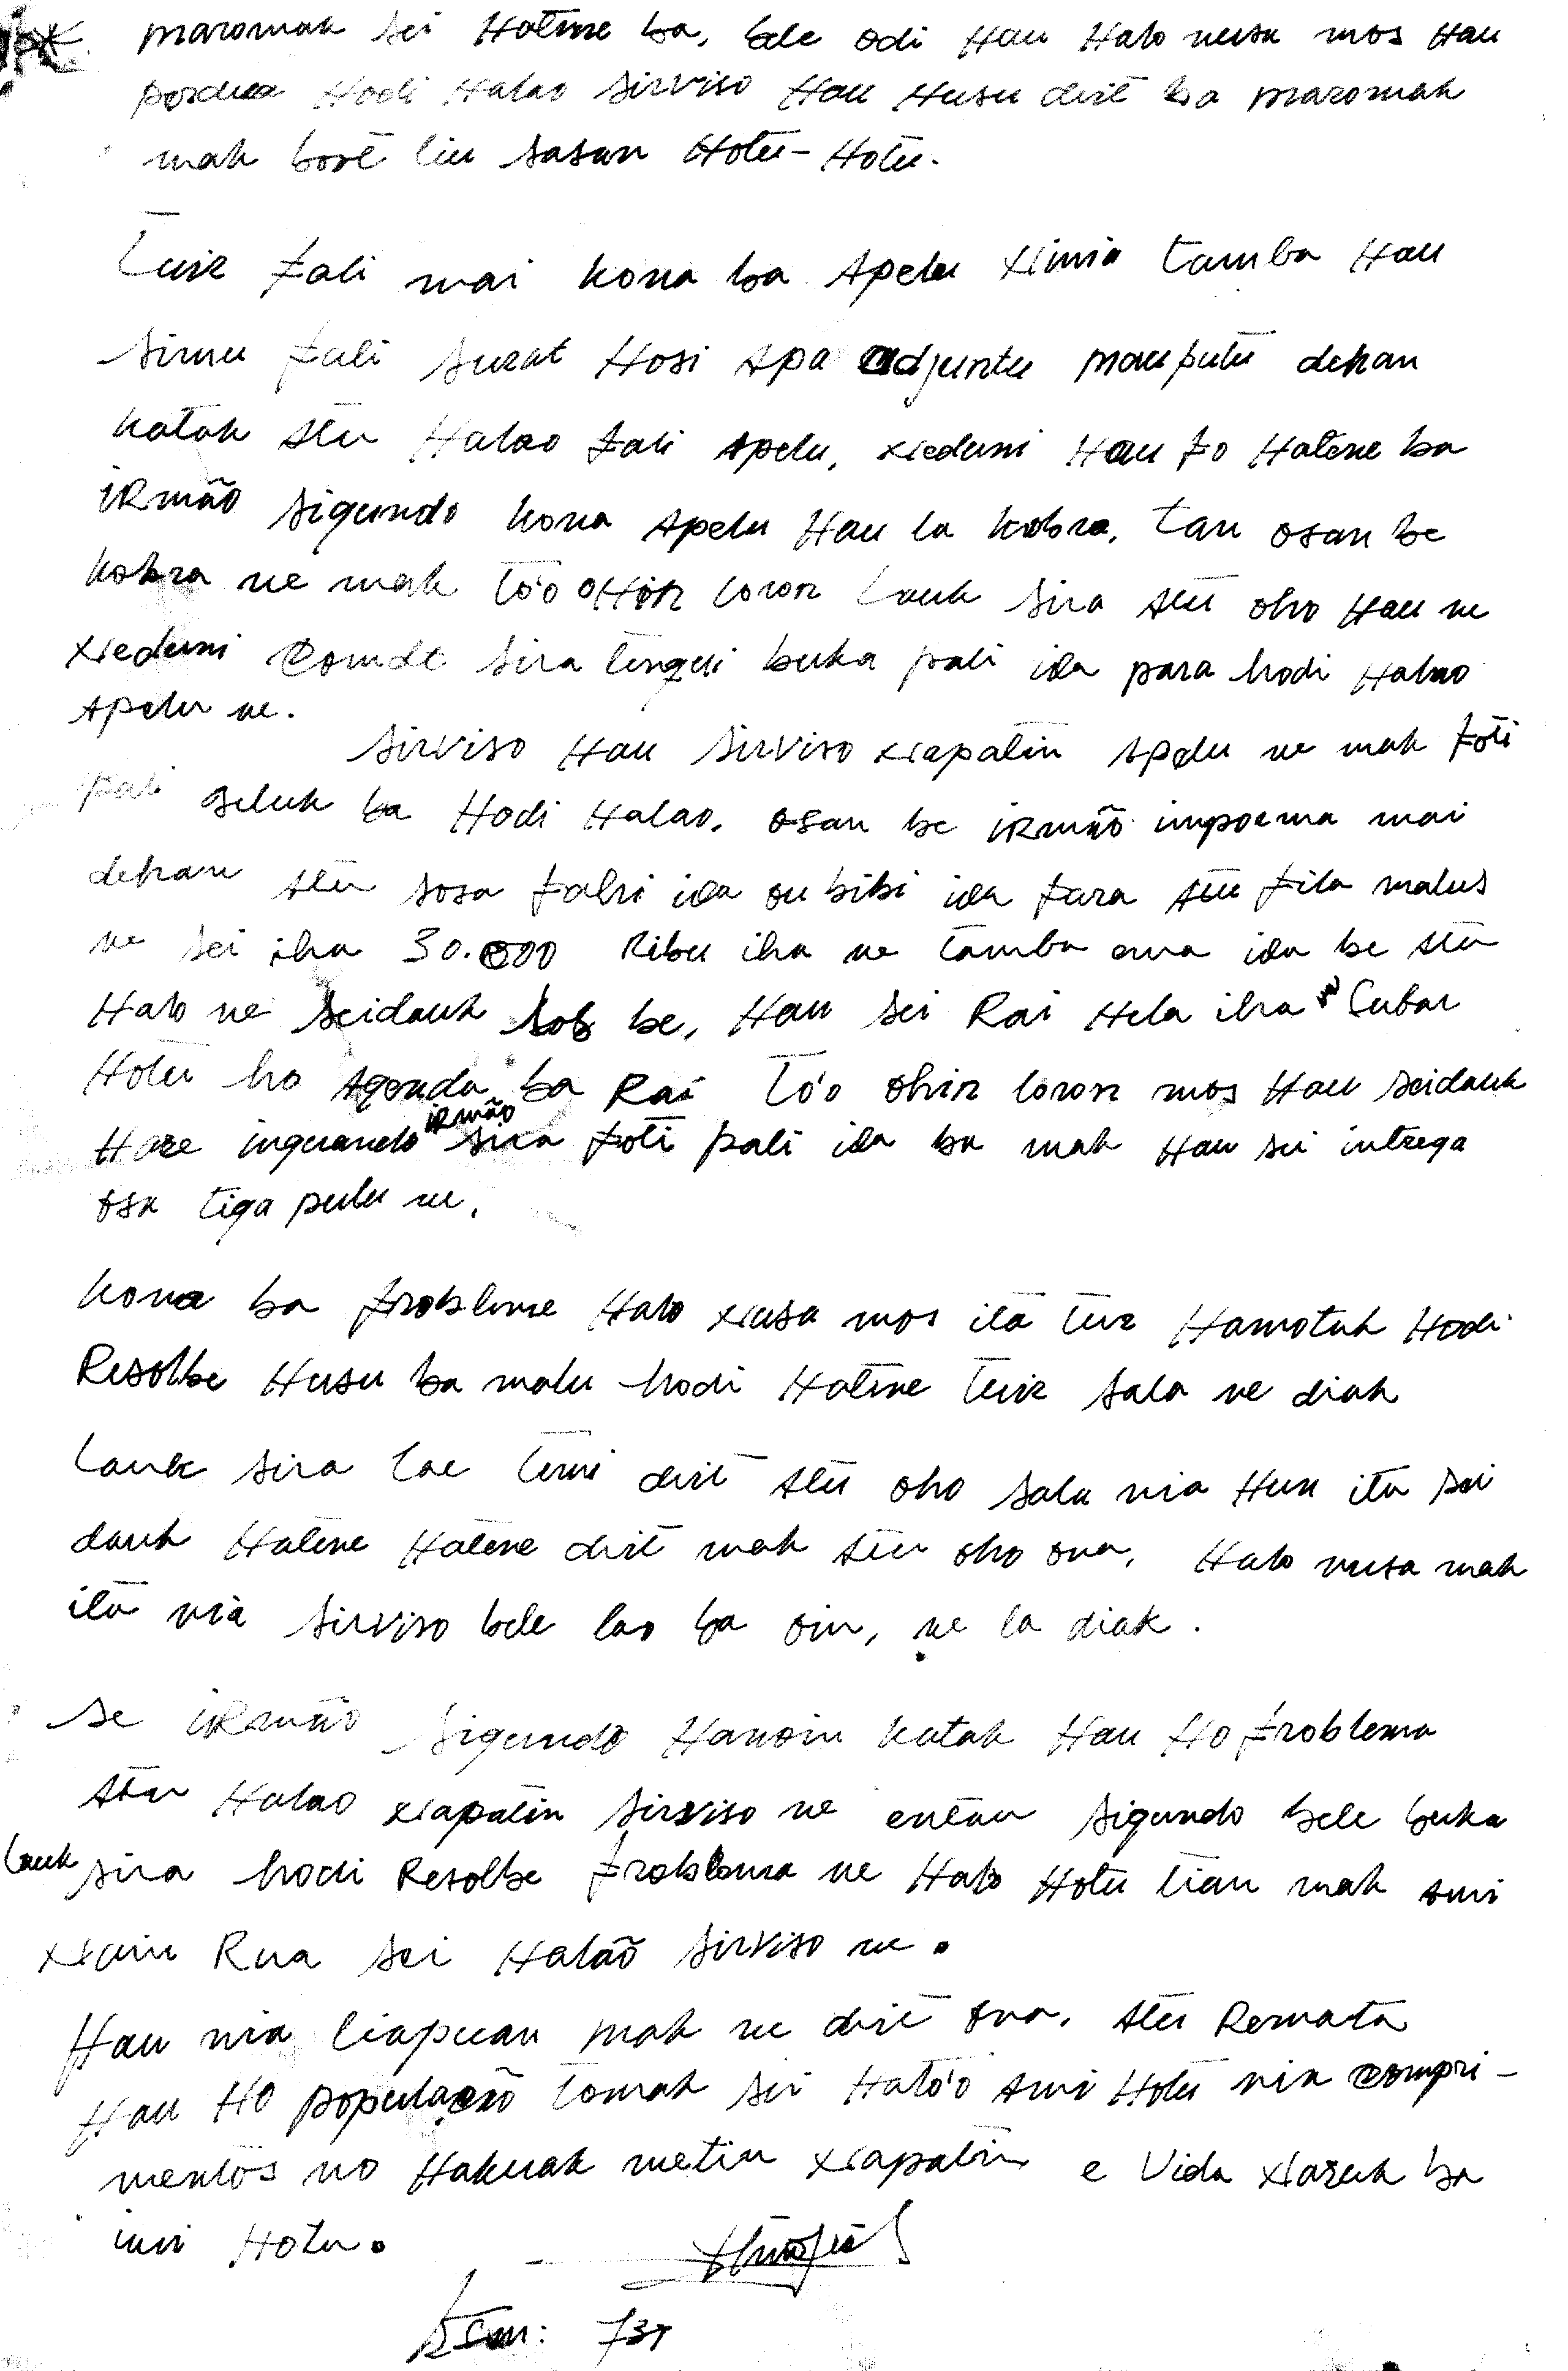 maromak sei Hatene ba, bele odi Hau Halo nusa mos Hau
Hodi Halao Sirviso Hau Husu dirt ba maromak
mak bort liu sasan Hotu-Hotu.
Tuir fali mai kona ba Apelu Ximia tamba Hau
simu fali surat Hosi Apa adjuntu mauputu dehan
katak atu Halao fali Apelu, xeduni Hau fo Hatene ba
irmão Sigundo kona Apelu Hau la kobra, tan osan be
kobra ne mak to'o OHin loron lauk sira atu oho Hau ne
xeduni Comdt sira tenqui buka pali ida para hodi Halao
Apelu ne.
Sirviso Hau Sirviso xapatin Apelu ne mak foti
pali seluk ba Hodi Halao. osan be irmão mai
dehan atu sosa fahi ida ou bibi ida fara atu fila malus
ne sei iha 30.000 Ribu iha ne tamba ema ida be atu
Halo ne seidauk sos be, Hau sei Rai Hela iha Subar
Hotu ho Agenda ba Rai to'o ohin loron mos Hau seidauk
Hare inquando irmão sira foti pali ida ba mak Hau sei intrega
osa tiga pulu ne.
kona ba frobleme Halo xusa mos ita tur Hamotuk Hodi
Resolbe Husu ba malu hodi Hatene tuir sala ne diak
lauk sira lae temi dirt atu oho sala nia Hun ita sei
dauk Hatene Hatene dirt mak atu oho ona, Halo nusa mak
ita nia Sirviso bele lao ba oin, ne la diak.
Se irmão Sigundo Hanoin katak Hau Ho froblema
atu Halao xapatin Sirviso ne entau Sigundo bele buka
lauk sira hodi Resolbe froblema ne Halo Hotu tian mak ami
xain Rua sei Halaõ Sirviso ne.
Hau nia liapuan mak ne dirt ona. atu Remata
Hau HO população tomak sei Hato'o ami Hotu nia compri-
mentos no Hakuak metin xapatin e Vida xaruk ba
imi Hotu.